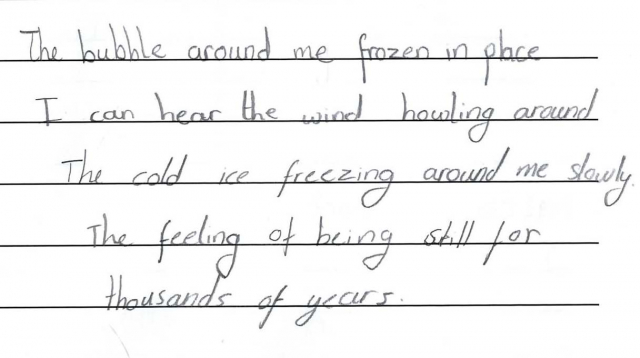 The bubble around me frozen in place
I can hear the wind howling around
The cold ice freezing around me slowly.
The feeling of being still for
thousands of years.